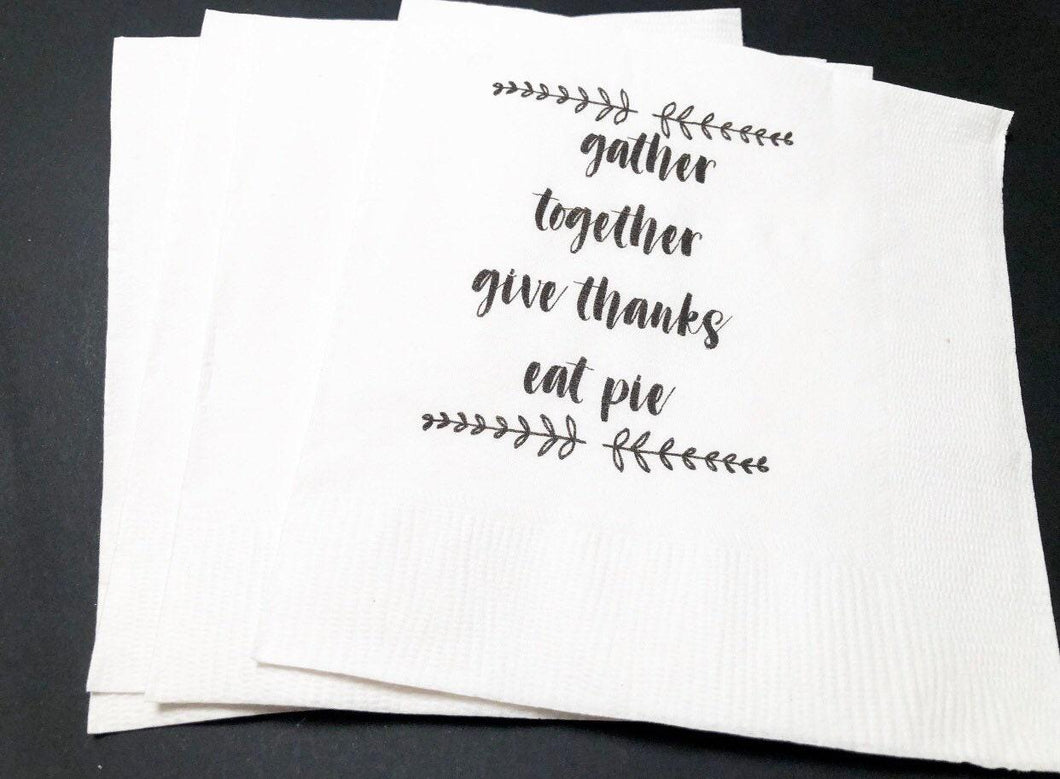 gather
together
give thanks
eat pie